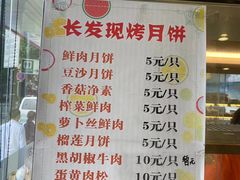 长发现烤月饼
鲜肉月饼 5元/只
豆沙月饼 5元/只
香菇净素 5元/只
榨菜鲜肉 5元/只
萝卜丝鲜肉 5元/只
榴莲月饼 5元/只
黑胡椒牛肉 10元/只
蛋黄肉松 10元/只